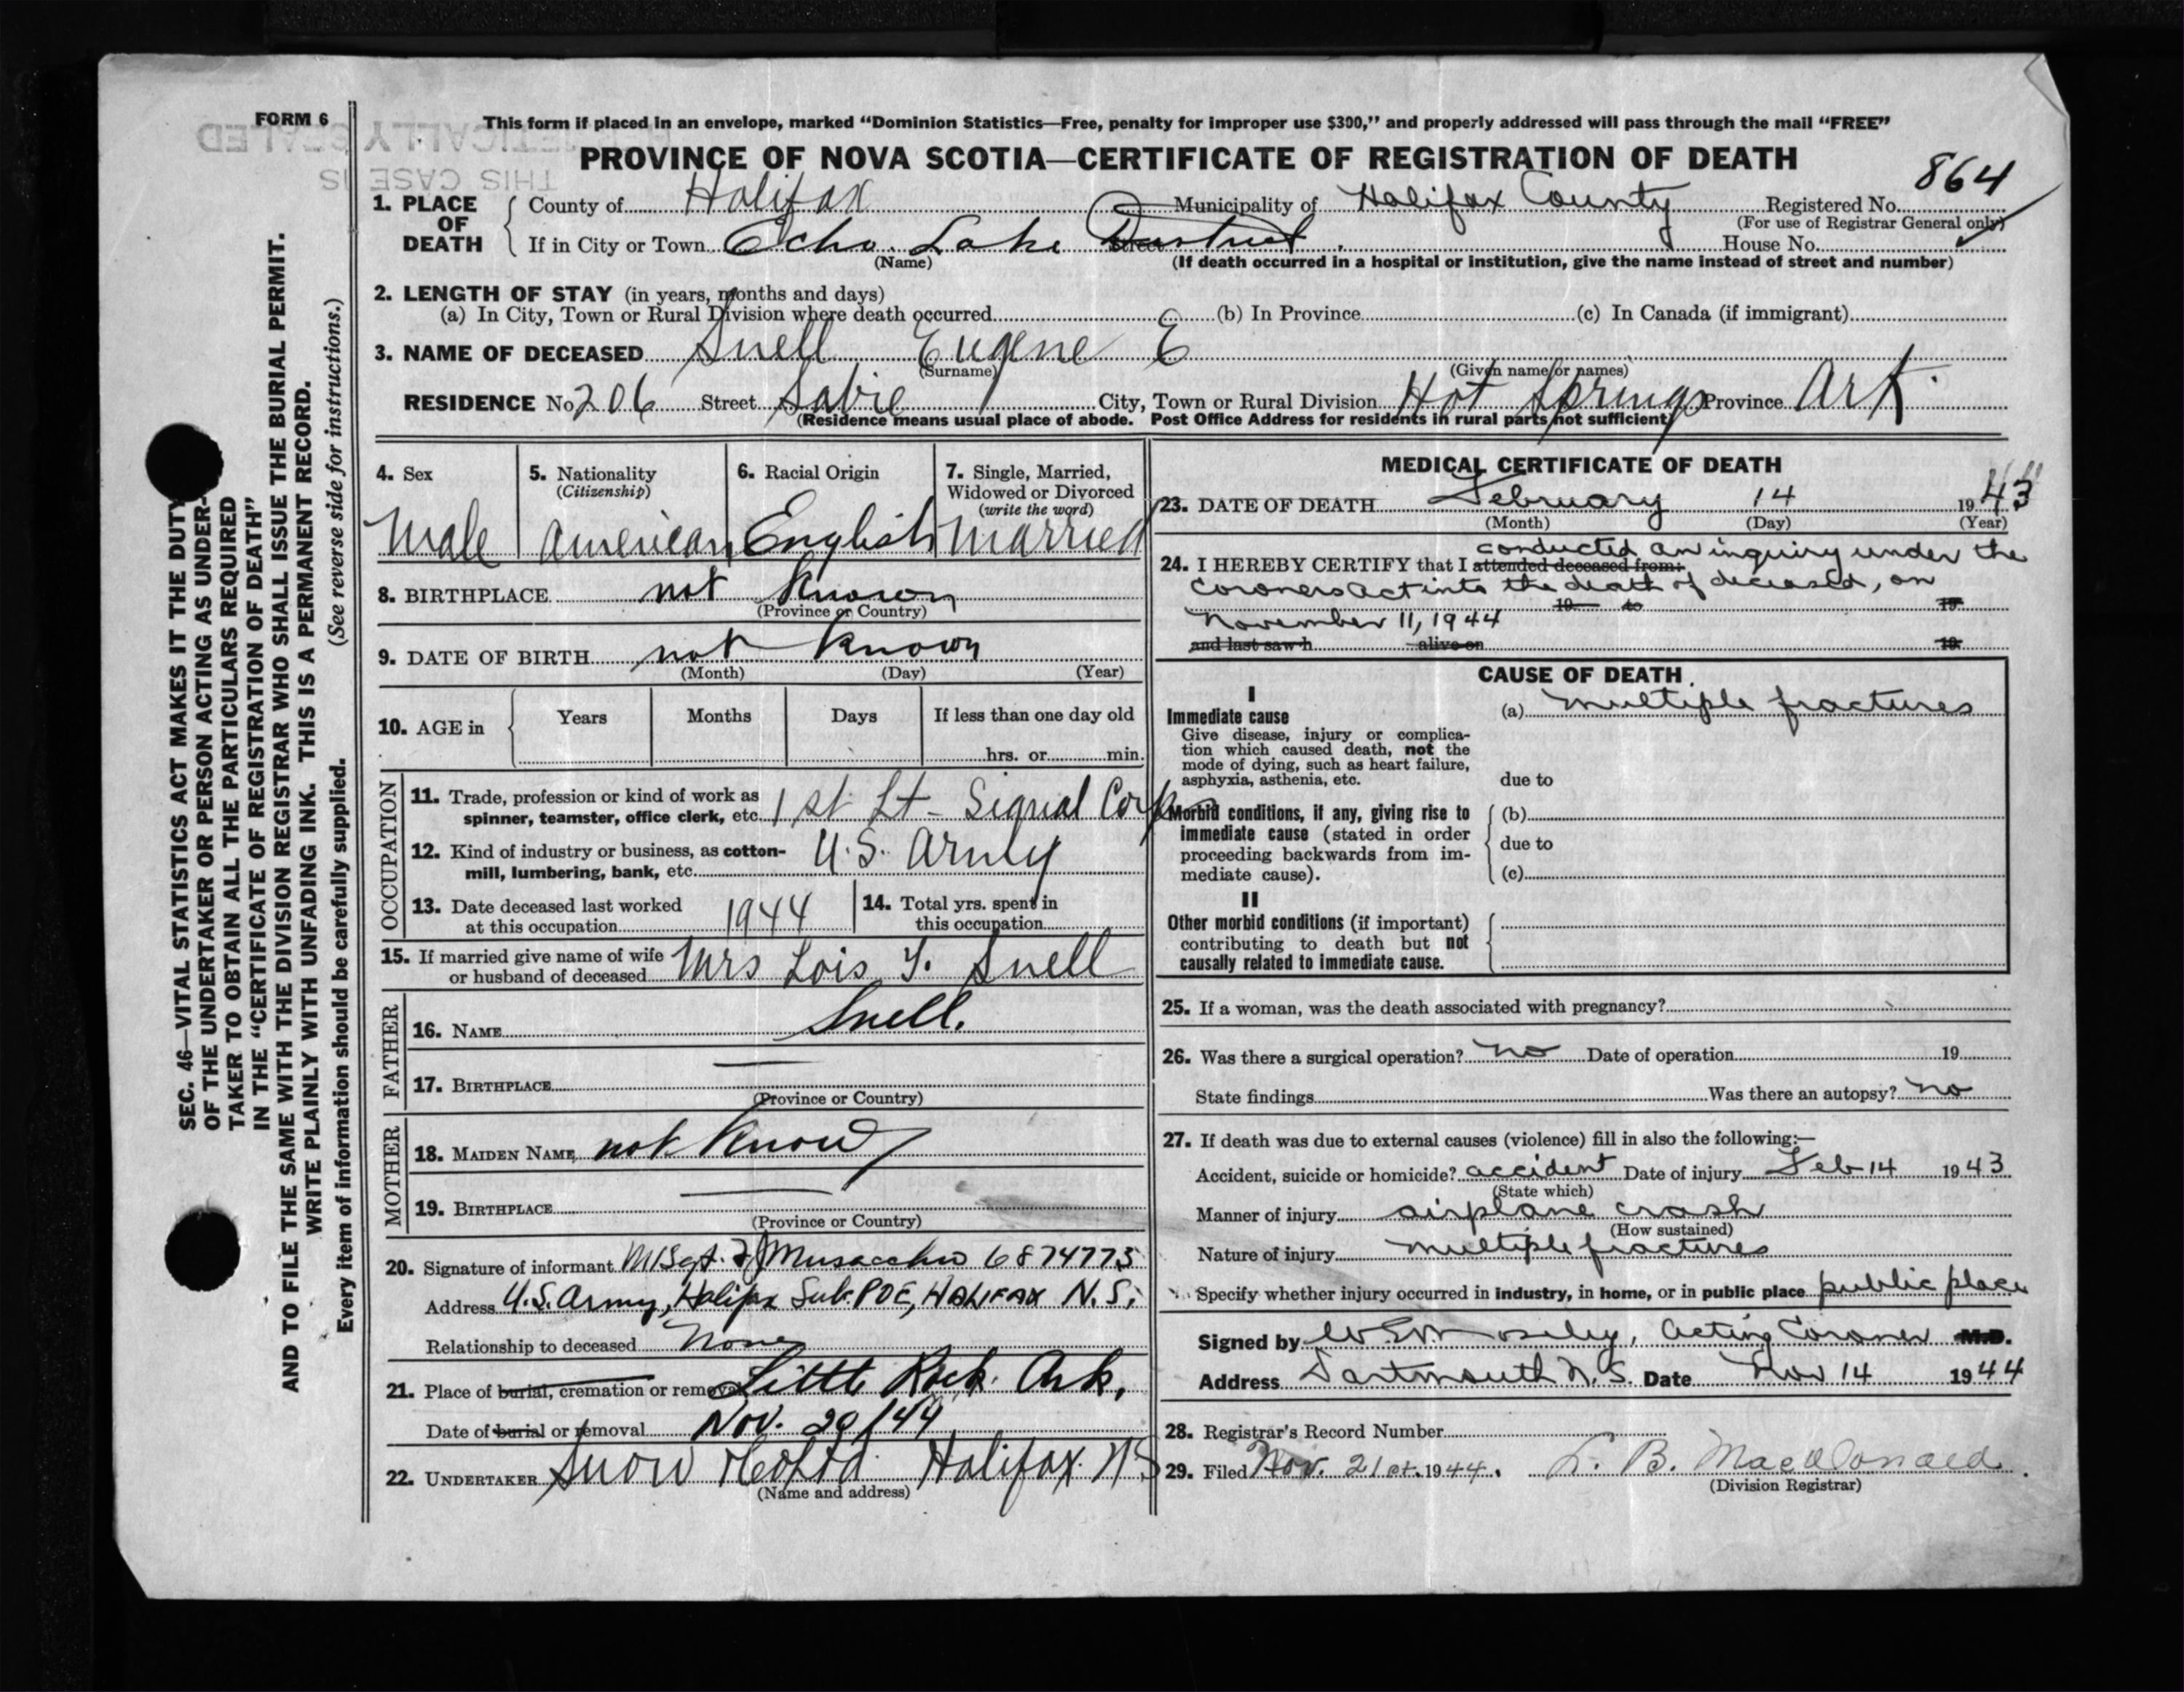 FORM 6
This form if placed in an envelope, marked "Dominion Statistics—Free, penalty for improper use $300," and properly addressed will pass through the mail "FREE"
THIS CASE IS
PROVINCE OF NOVA SCOTIA—CERTIFICATE OF REGISTRATION OF DEATH
864
1. PLACE OF DEATH
County of Halifax Municipality of Halifax County Registered No.
(For use of Registrar General only)
If in City or Town Echo Lake District House No.
(Name) (If death occurred in a hospital or institution, give the name instead of street and number)
2. LENGTH OF STAY (in years, months and days)
(a) In City, Town or Rural Division where death occurred (b) In Province (c) In Canada (if immigrant)
3. NAME OF DECEASED Snell Eugene E
(Surname) (Given name or names)
RESIDENCE No 206 Street Sabie City, Town or Rural Division Hot Springs Province Ark.
(Residence means usual place of abode. Post Office Address for residents in rural parts not sufficient)
4. Sex
Male
5. Nationality
(Citizenship)
American
6. Racial Origin
English
7. Single, Married,
Widowed or Divorced
(write the word)
Married
8. BIRTHPLACE not known
(Province or Country)
9. DATE OF BIRTH not known
(Month) (Day) (Year)
10. AGE in Years Months Days If less than one day old
hrs. or min.
OCCUPATION
11. Trade, profession or kind of work as
spinner, teamster, office clerk, etc. 1st Lt - Signal Corp
12. Kind of industry or business, as cotton-
mill, lumbering, bank, etc. U.S. Army
13. Date deceased last worked
at this occupation 1944
14. Total yrs. spent in
this occupation
15. If married give name of wife
or husband of deceased Mrs Lois Y. Snell
FATHER
16. NAME Snell.
17. BIRTHPLACE —
(Province or Country)
MOTHER
18. MAIDEN NAME not know
19. BIRTHPLACE —
(Province or Country)
20. Signature of informant M/Sgt. Musacchio 6874775
Address U.S. Army, Halifax Sub. POE, HALIFAX N.S.
Relationship to deceased None
21. Place of burial, cremation or removal Little Rock Ark.
Date of burial or removal Nov. 20/44
22. UNDERTAKER Snow & Co Ltd. Halifax. NS
(Name and address)
MEDICAL CERTIFICATE OF DEATH
23. DATE OF DEATH February 14 1943
(Month) (Day) (Year)
24. I HEREBY CERTIFY that I attended deceased from: conducted an inquiry under the
Coroners Act into the death of deceased, on
19 to 19
November 11, 1944
and last saw h alive on 19
CAUSE OF DEATH
I
Immediate cause
Give disease, injury or complica-
tion which caused death, not the
mode of dying, such as heart failure,
asphyxia, asthenia, etc.
(a) multiple fractures
due to
Morbid conditions, if any, giving rise to
immediate cause (stated in order
proceeding backwards from im-
mediate cause).
(b)
due to
(c)
II
Other morbid conditions (if important)
contributing to death but not
causally related to immediate cause.
25. If a woman, was the death associated with pregnancy?
26. Was there a surgical operation? no Date of operation 19
State findings Was there an autopsy? no
27. If death was due to external causes (violence) fill in also the following:—
Accident, suicide or homicide? accident Date of injury Feb 14 1943
(State which)
Manner of injury airplane crash
(How sustained)
Nature of injury multiple fractures
Specify whether injury occurred in industry, in home, or in public place public place
Signed by W E Moseley, Acting Coroner M.D.
Address Dartmouth N.S. Date Nov 14 1944
28. Registrar's Record Number
29. Filed Nov. 21st. 1944. L. B. MacDonald
(Division Registrar)
SEC. 46—VITAL STATISTICS ACT MAKES IT THE DUTY
OF THE UNDERTAKER OR PERSON ACTING AS UNDER-
TAKER TO OBTAIN ALL THE PARTICULARS REQUIRED
IN THE "CERTIFICATE OF REGISTRATION OF DEATH"
AND TO FILE THE SAME WITH THE DIVISION REGISTRAR WHO SHALL ISSUE THE BURIAL PERMIT.
WRITE PLAINLY WITH UNFADING INK. THIS IS A PERMANENT RECORD.
Every item of information should be carefully supplied. (See reverse side for instructions.)